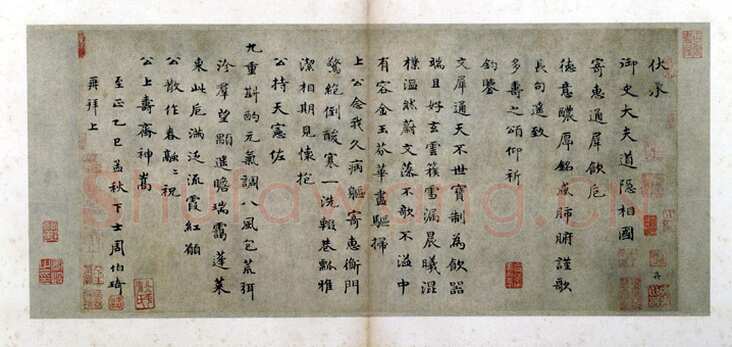 伏承
御史大夫道隱相國
寄惠通犀飲卮
德意醲厚銘感肺腑謹歌
長句遙致
多壽之頌仰祈
鈞鑒
文犀通天不世寶制為飲器
端且好玄雲篆雪漏晨曦混
樸溫然蔚文藻不歌不溢中
有容金玉芬華盡驅掃
上公念我久病軀寄惠衡門
驚絕倒酸寒一洗輟巷瓢雅
潔相期見懷抱
公持天憲佐
九重斟酌元氣調八風包荒弭
沴羣望顒遙瞻瑞靄蓬萊
東此卮滿泛流霞紅願
公散作春融〻祝
公上壽齊神嵩
至正乙巳孟秋下士周伯琦
再拜上
shufawang.cn